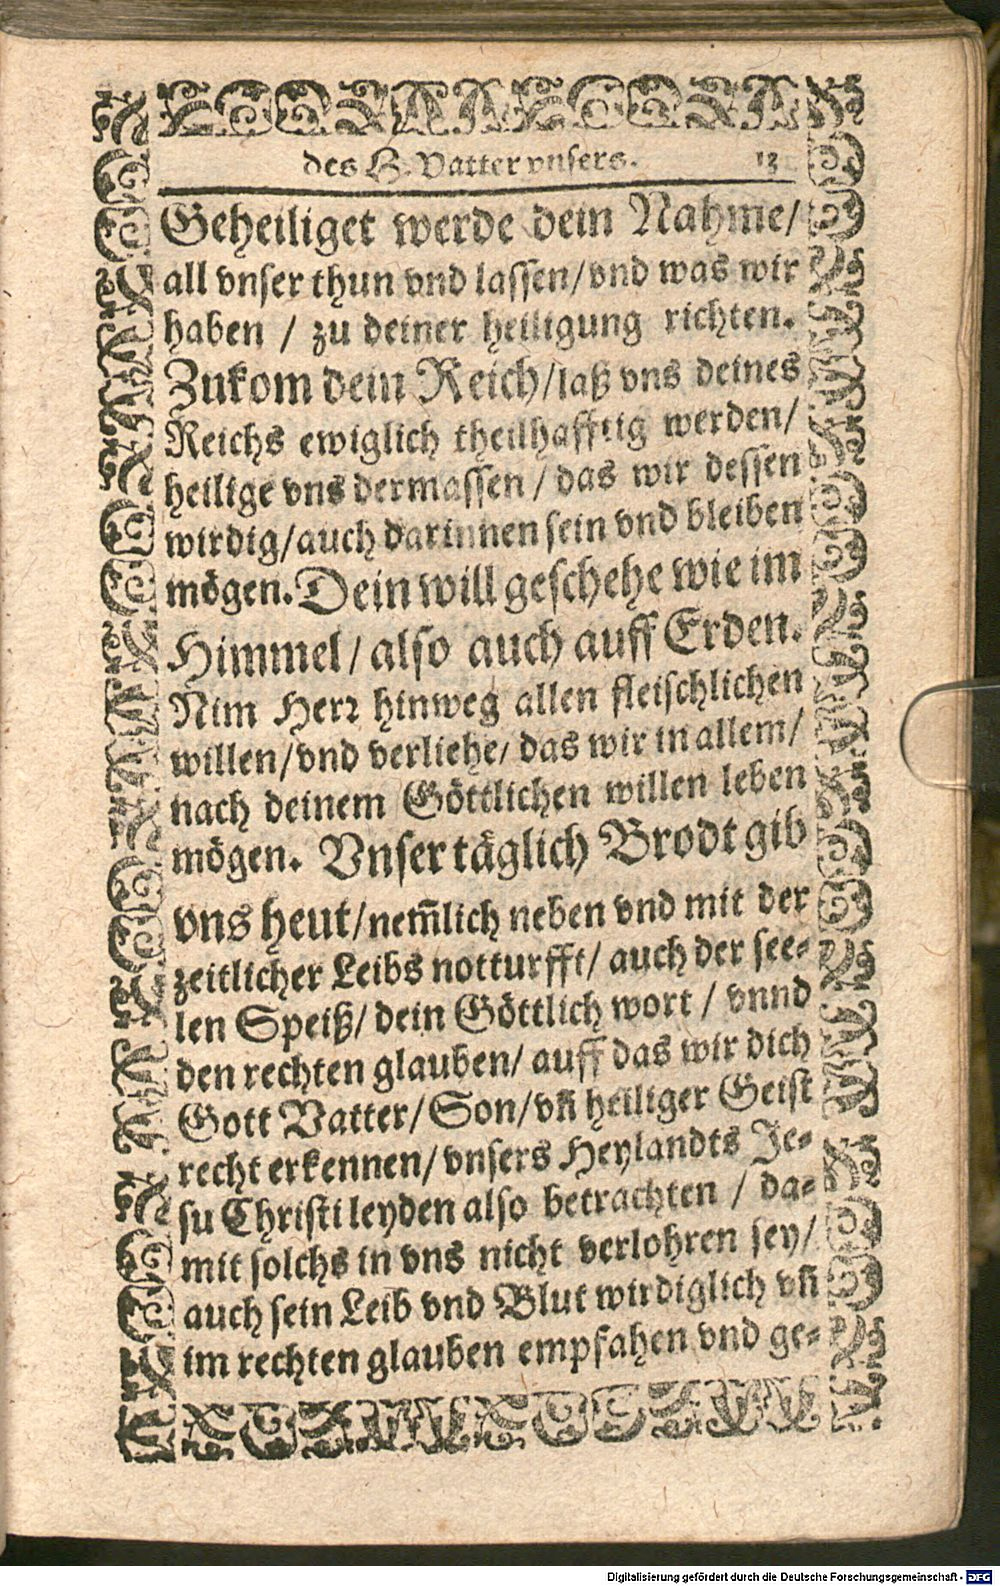 des H. Vatter vnsers. 13
Geheiliget werde dein Nahme/
all vnser thun vnd lassen/vnd was wir
haben / zu deiner heiligung richten.
Zukom dein Reich/laß vns deines
Reichs ewiglich theilhafftig werden/
heilige vns dermassen / das wir dessen
wirdig/auch darinnen sein vnd bleiben
mögen. Dein will geschehe wie im
Himmel / also auch auff Erden.
Nim Herr hinweg allen fleischlichen
willen/vnd verliehe/ das wir in allem/
nach deinem Göttlichen willen leben
mögen. Vnser täglich Brodt gib
vns heut/nem̃lich neben vnd mit der
zeitlicher Leibs notturfft/ auch der see-
len Speiß/ dein Göttlich wort / vnnd
den rechten glauben/ auff das wir dich
Gott Vatter/ Son/vñ heiliger Geist
recht erkennen/ vnsers Heylandts Je-
su Christi leyden also betrachten / da-
mit solchs in vns nicht verlohren sey/
auch sein Leib vnd Blut wirdiglich vñ
im rechten glauben empfahen vnd ge-
Digitalisierung gefördert durch die Deutsche Forschungsgemeinschaft - DFG